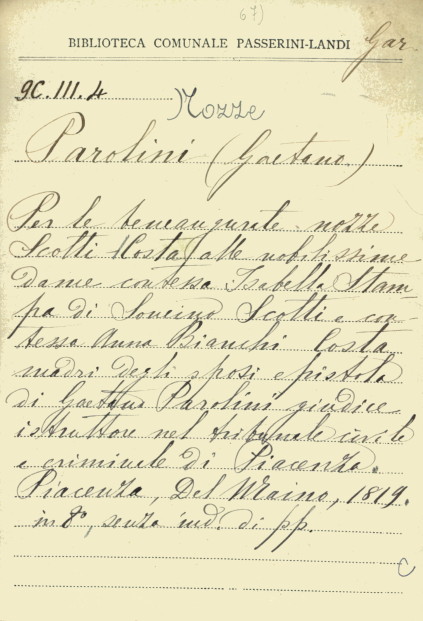 67)
BIBLIOTECA COMUNALE PASSERINI-LANDI
Gar
9C.III.4
Nozze
Parolini (Gaetano)
Per le beneaugurate nozze
Scotti Costa, alle nobilissime
dame contessa Isabella Stam-
pa di Soncino Scotti e con-
tessa Anna Bianchi Costa,
madri degli sposi epistola
di Gaetano Parolini giudice
istruttore nel tribunale civile
e criminale di Piacenza.
Piacenza, Del Maino, 1819.
in 8°, senza ind. di pp.
C